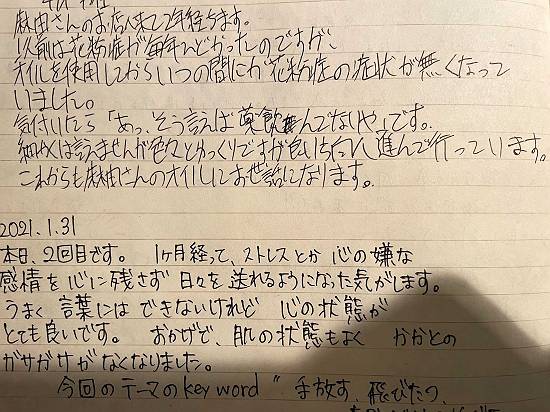 麻由さんのお店へ来て2年経ちます。
以前は花粉症が毎年ひどかったのですが、
オイルを使用してからいつの間にか花粉症の症状が無くなって
いました。
気付いたら「あっ、そう言えば薬飲んでないや」です。
細かくは言えませんが色々とゆっくりですが良い方向へ進んで行っています。
これからも麻由さんのオイルにお世話になります。
2021.1.31
本日、2回目です。 1ヶ月経って、ストレスとか 心の嫌な
感情を心に残さず 日々を送れるようになった気がします。
うまく言葉には できないけれど 心の状態が
とても良いです。 おかげで、肌の状態もよく かかとの
ガサガサがなくなりました。
今回のテーマのkey word " 手放す、飛びたつ、